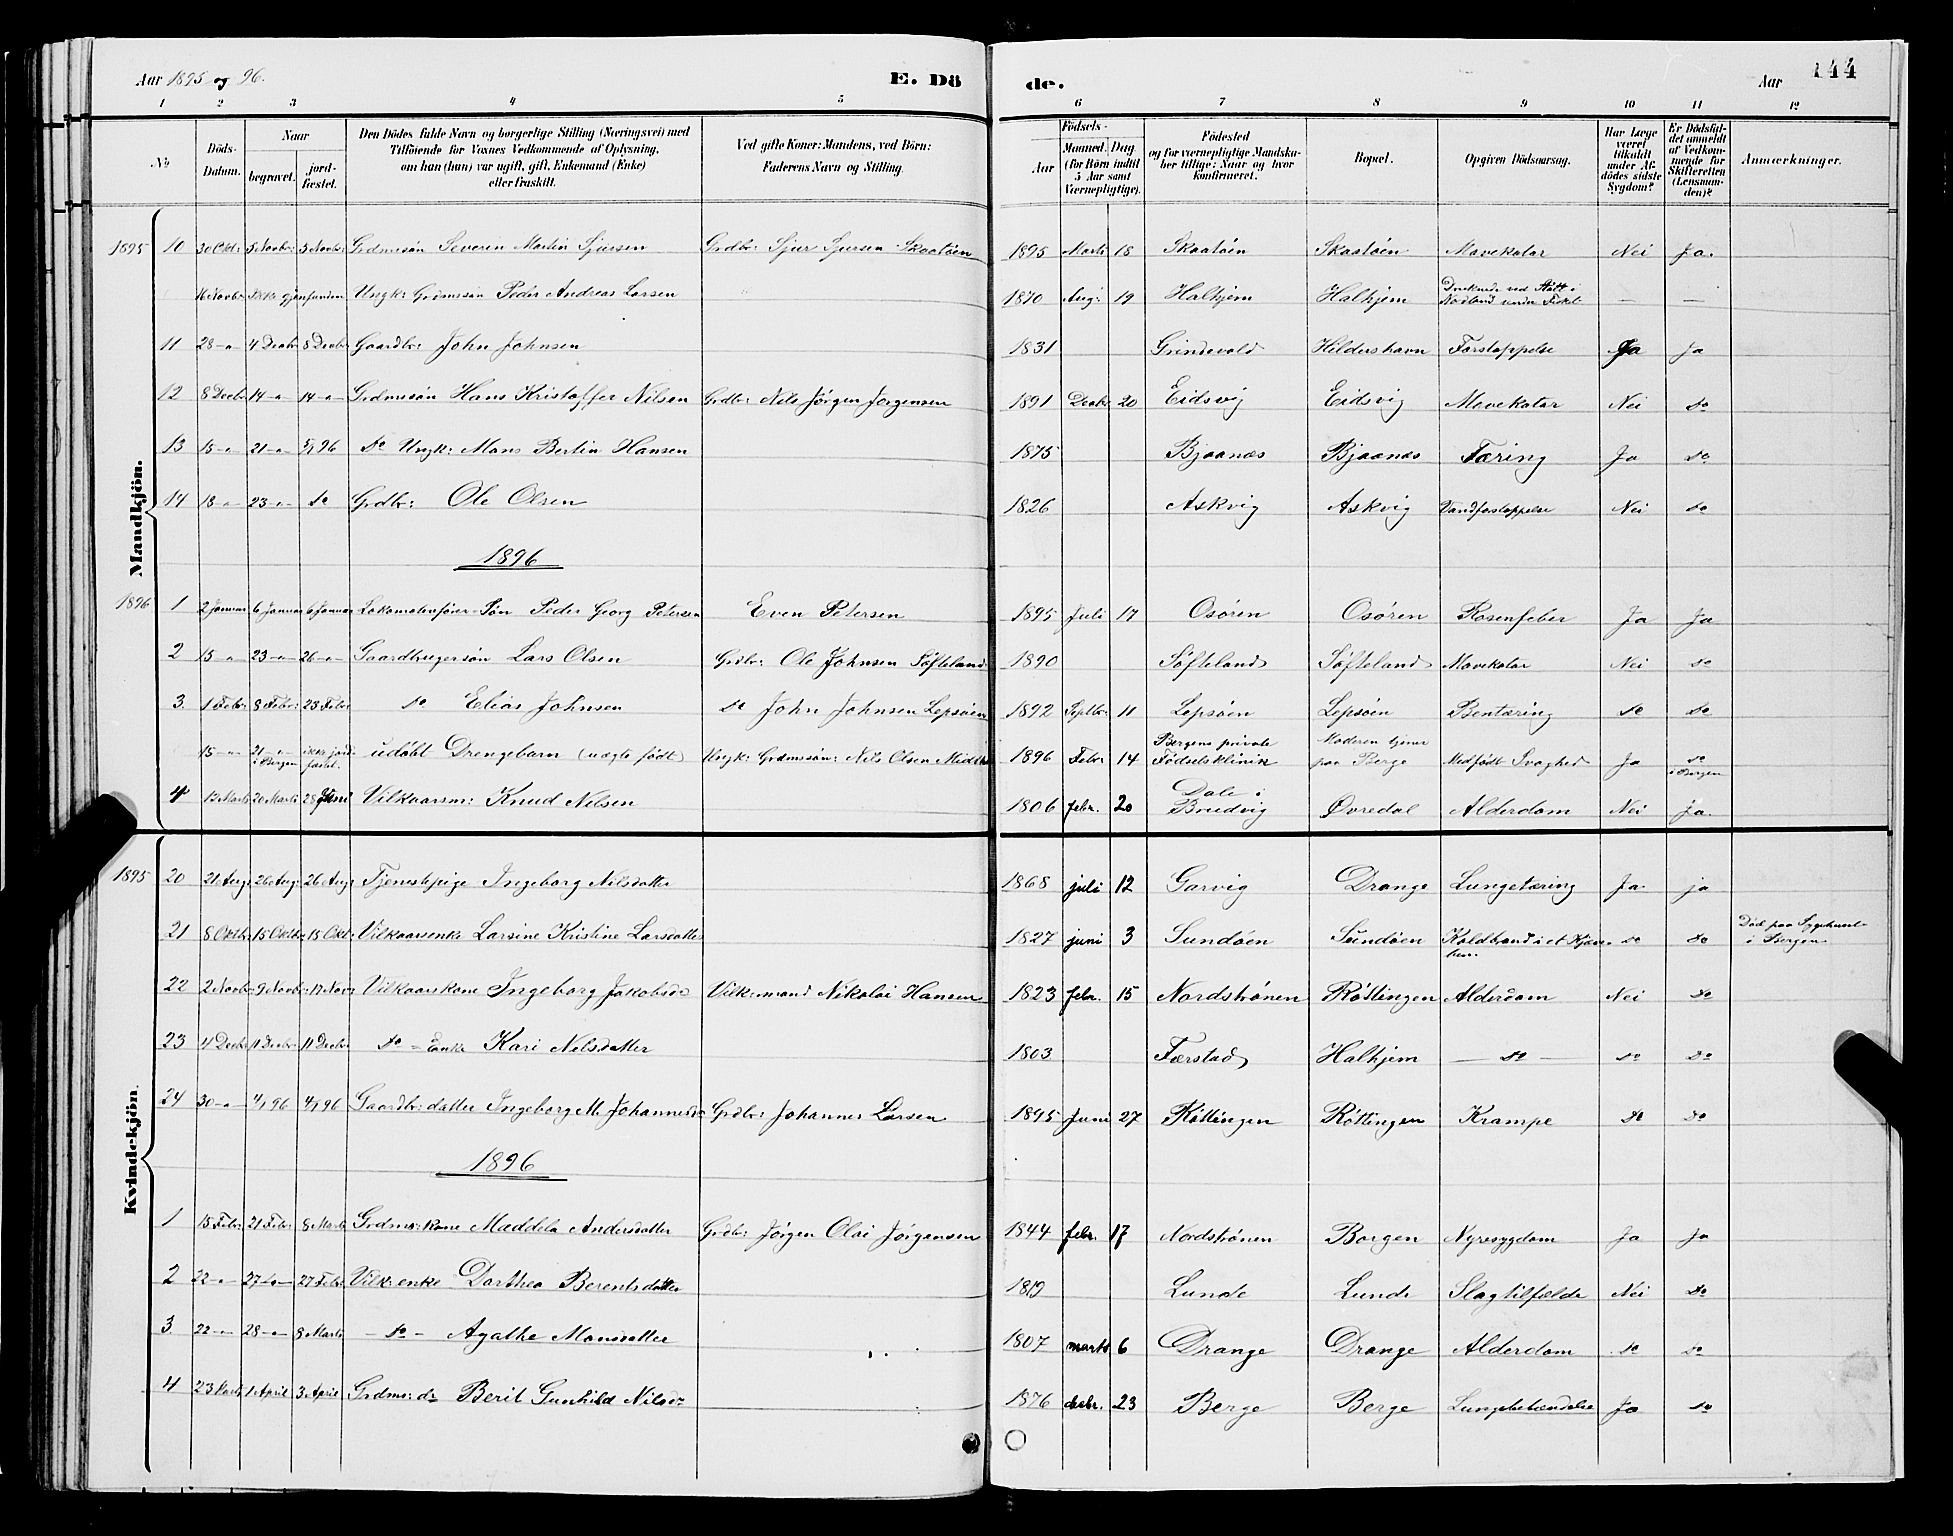 Aar 1895 og 96. E. Dö de. Aar 144
1 2 3 4 5 6 7 8 9 10 11 12
No
Döds-Datum.
Naar
begravet.
jord-fæstet.
Den Dödes fulde Navn og borgerlige Stilling (Næringsvei) med
Tilföiende for Voxnes Vedkommende af Oplysning,
om han (hun) var ugift, gift, Enkemand (Enke)
eller fraskilt.
Ved gifte Koner: Mandens, ved Börn:
Faderens Navn og Stilling.
Födsels-
Aar
Maaned. Dag.
(for Börn indtil
5 Aar samt
Værnepligtige).
Födested
og for værnepligtige Mandska-
ber tillige: Naar og hvor
konfirmeret.
Bopæl.
Opgiven Dödsaarsag.
Har Læge
været
tilkaldt
under Af-
dödes sidste
Sygdom?
Er Dödsfal-
det anmeldt
af Vedkom-
mende for
Skifteretten
(Lensman-
den)?
Anmærkninger.
Mandkjön.
1895 10 30 Okt: 5 Novbr: 5 Novbr: Grdmssön Severin Martin Sjursen Grdbr: Sjur Sjursen Skaatöen 1895 Marts 18 Skaatöen Skaatöen Mavekatar Nei Ja.
16 Novbr: Ikke gjenfunden Ungk: Grdmssön Peder Andreas Larsen 1870 Aug: 19 Halhjem Halhjem Druknede ved Stött i Nordland under Fiske — —
11 28 -"- 4 Decbr 8 Decbr Gaardbr: John Johnsen 1831 Grindevold Hildershavn Forstoppelse Ja Ja
12 8 Decbr 14 -"- 14 -"- Grdmssön Hans Kristoffer Nilsen Grdbr: Nils Jörgen Jörgensen 1891 Decbr 20 Eidsvig Eidsvig Mavekatar Nei do
13 15 -"- 21 -"- 5/1 96 do Ungk: Mons Bertin Hansen 1875 Bjaanæs Bjaanæs Tæring Ja do
14 18 -"- 23 -"- do Grdbr: Ole Olsen 1826 Askvig Askvig Vandforstoppelse Nei do
1896
1896 1 2 Januar 6 Januar 6 Januar Lokomotivförer-Sön Peder Georg Petersen Even Petersen 1895 Juli 17 Osören Osören Rosenfeber Ja Ja
2 15 " 23 -"- 26 -"- Gaardbrugersön Lars Olsen Grdbr: Ole Johnsen Söfteland 1890 Söfteland Söfteland Mavekatar Nei do
3. 1 Febr: 8 Febr: 23 Febr do Elias Johnsen do John Johnsen Lepsöen 1892 Septbr: 11 Lepsöen Lepsöen Bentæring do do
15 -"- 21 -"- i Bergen ikke jordfæstet. udöbt Drengebarn (uægte födt) Ungk: Grdmssön: Nils Olsen 1896 Febr 14 Bergens private Födselsklinik Moderen tjener paa Berge Medfödt Svaghed Ja do i Bergen
4 13 Marts 20 Marts 28 Juni Vilkaarsm: Knud Nilsen 1806 febr. 20 Dale i Bruvig Övredal Alderdom Nei Ja.
Kvindekjön.
1895 20 21 Aug: 26 Aug: 26 Aug Tjenestepige Ingeborg Nilsdatter 1868 juli 12 Garvig Drange Lungetæring Ja. ja
21 8 Oktb: 15 Oktb: 15 Okt: Vilkaarsenke Larsine Kristine Larsdatter 1827 juni 3 Sundöen Sundöen Koldbrand i et do do Död paa Sygehuset i Bergen
22 2 Novbr: 9 Novbr: 17 Nov: Vilkaarskone Ingeborg Jakobsdr Vilk:mand Nikolai Hansen 1823 febr. 15 Nordströnen Röttingen Alderdom Nei do
23 4 Decbr 11 Decbr 11 Decbr do - Enke Kari Nilsdatter 1803 Færstad Halhjem — do — do do
24 30 -"- 4/1 96 4/1 96 Gaardbr: datter Ingeborg M. Johannesdr Grdbr: Johannes Larsen 1895 Juni 27 Röttingen Röttingen Krampe do do
1896
1 15 Febr 21 Febr 8 Marts Grdms: kone Maddela Andersdatter Grdbr: Jörgen Olai Jörgensen 1844 febr. 17 Nordströnen Borgen Nyresygdom Ja Ja
2 22 -"- 27 -"- 27 Febr Vilk: enke Dorthea Berentsdatter 1819 Lunde Lunde Slagtilfælde Nei do
3. 22 -"- 28 -"- 8 Marts - do - Agathe Monsdatter 1807 marts 6 Drange Drange Alderdom do do
4 23 Marts 1 April 3 April Grdms: dr Berit Gunhild Nilsdr 1876 decbr. 23 Berge Berge Lungebetændelse Ja do